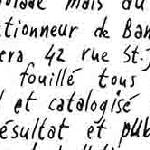 mais du
tionneur de Ban
era 42 rue St.
fouillé tous
et catalogisé
ésultat et pub